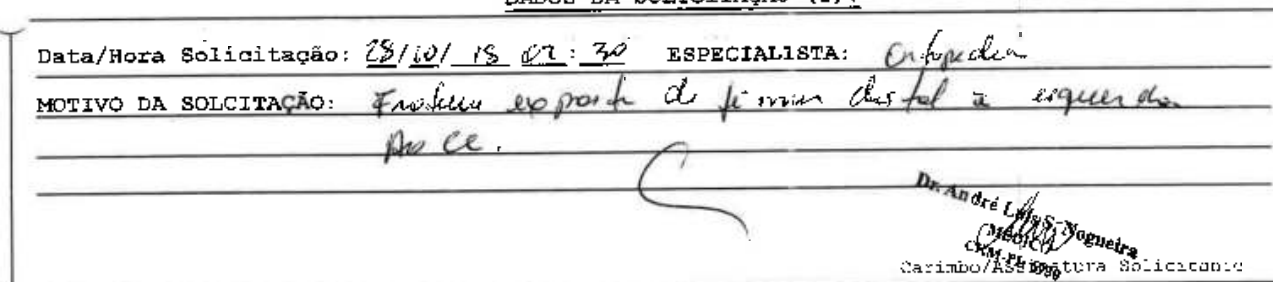 DADOS DA SOLICITAÇÃO
Data/Hora Solicitação: 28/10/18 07:30 ESPECIALISTA: Ortopedia
MOTIVO DA SOLCITAÇÃO: Fratura exposta de fêmur distal à esquerda
Ao CC.
Dr. André Luis S. Nogueira
MÉDICO
Carimbo/Assinatura Solicitante